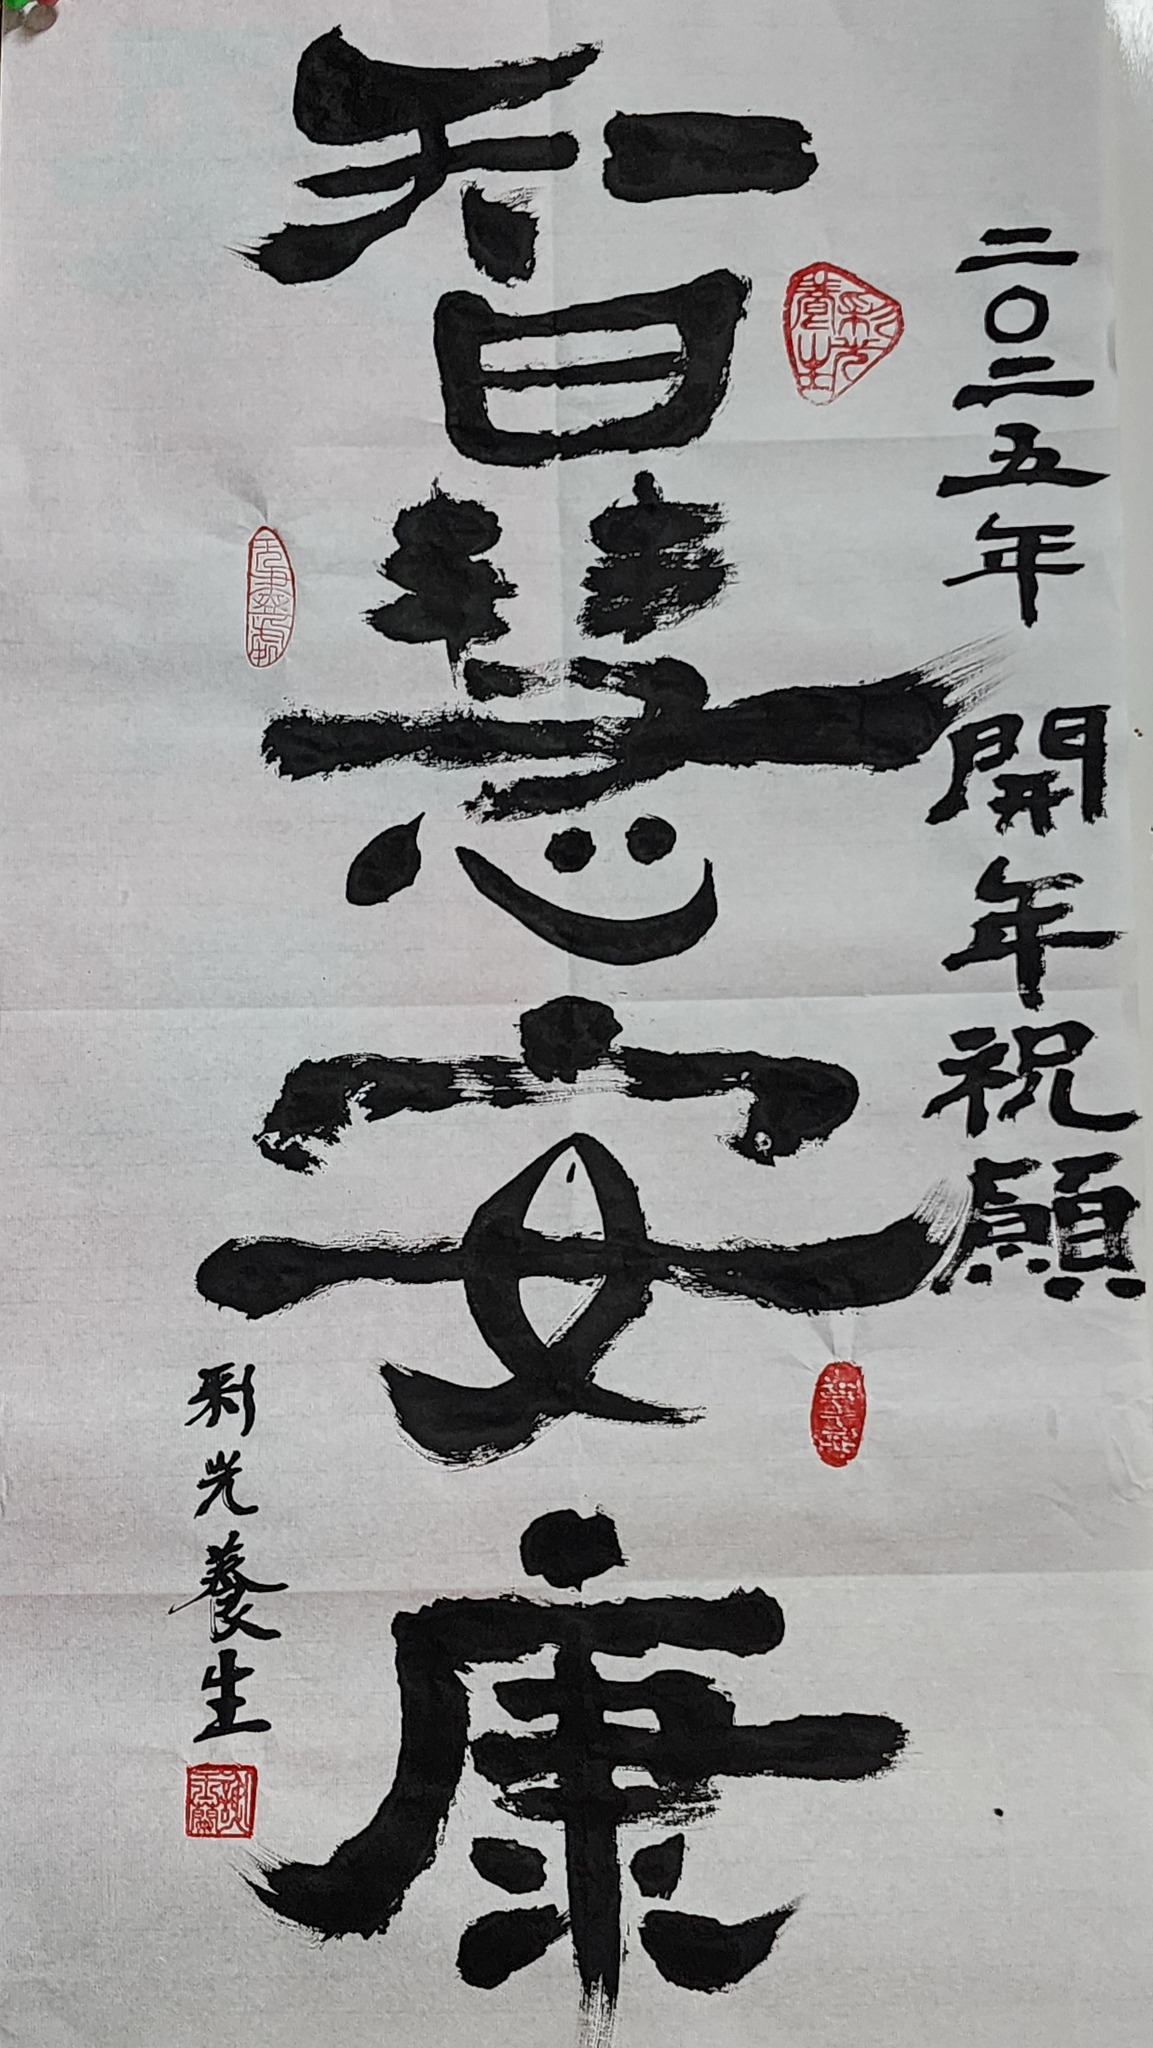 二〇二五年 開年祝願
智慧安康
彩光養生